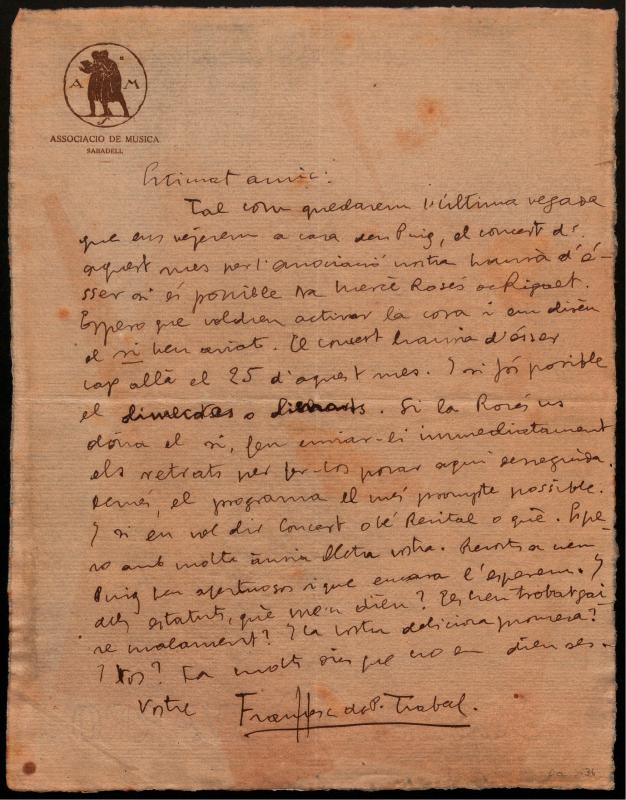 A M
S
ASSOCIACIO DE MUSICA
SABADELL
Estimat amic:
Tal com quedarem l'última vegada
que ens vejerem a casa den Puig, el concert d'
aquest mes per l'associació nostra haurà d'é-
sser si és possible Na Mercè Rosés de Riquet.
Espero que voldreu activar la cosa i em direu
el si ben aviat. El concert hauria d'ésser
cap allà el 25 d'aquest mes. I si fós possible
el dimecres o dimarts. Si la Rosés us
dóna el si, feu enviar-li immediatament
els retrats per fer-los posar aquí desseguida.
Demés, el programa el més prompte possible.
I si en vol dir Concert o bé Recital o què. Espe
ro amb molta ànsia lletra vostra. Recorts a n'en
Puig ben afectuosos i que encara l'esperem. I
dels estatuts, què me'n dieu? Les heu trobat gai
re malament? I la vostra deliciosa promesa?
I Vos? Fa molts dies que no em dieu res.
Vostre Francesc de P. Trabal.